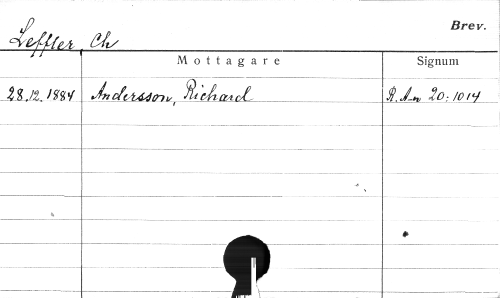 Brev.
Leffler, Ch
Mottagare Signum
28.12.1884 Andersson, Richard R. An 20:1014